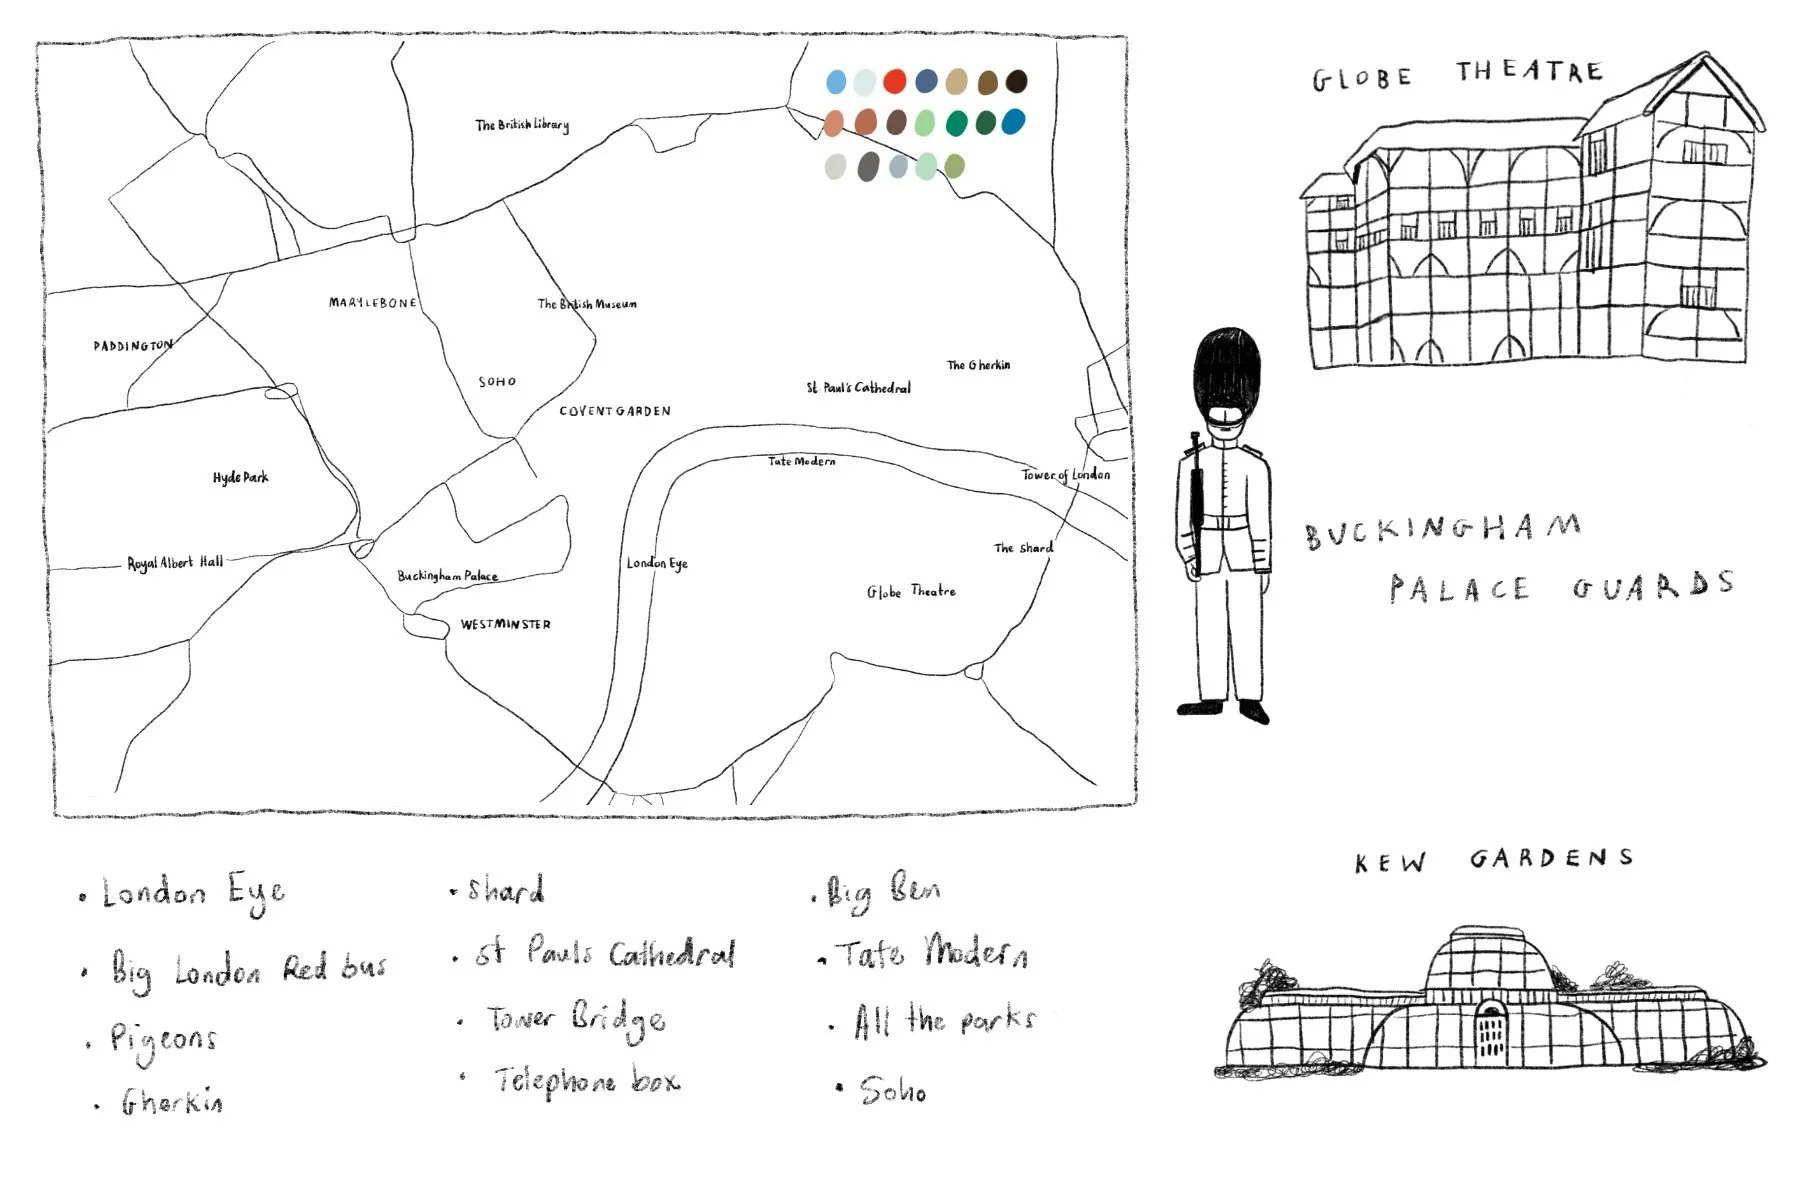 The British Library
MARYLEBONE
The British Museum
PADDINGTON
SOHO
COVENT GARDEN
St Paul's Cathedral
The Gherkin
Hyde Park
Tate Modern
Tower of London
Royal Albert Hall
Buckingham Palace
London Eye
The Shard
Globe Theatre
WESTMINSTER
GLOBE THEATRE
BUCKINGHAM
PALACE GUARDS
KEW GARDENS
• London Eye
• Big London Red bus
• Pigeons
• Gherkin
• Shard
• St Pauls Cathedral
• Tower Bridge
• Telephone box
• Big Ben
• Tate Modern
• All the parks
• Soho